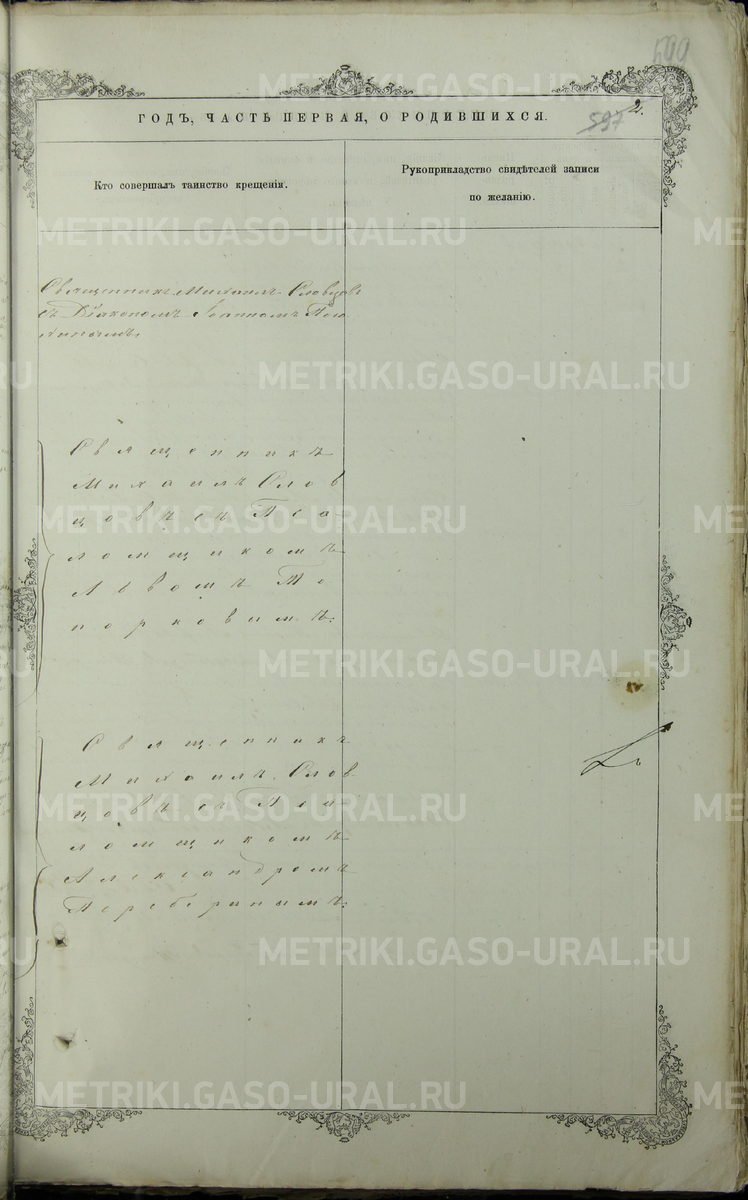 600
597
2.
ГОДЪ, ЧАСТЬ ПЕРВАЯ, О РОДИВШИХСЯ.
Кто совершалъ таинство крещенія.
Рукоприкладство свидѣтелей записи
по желанію.
Священникъ Михаилъ Словцовъ
съ Діакономъ Іоанномъ
Священникъ
Михаилъ Слов
цовъ съ Пса-
ломщикомъ
Львомъ То
порковымъ.
Священникъ
Михаилъ Слов
цовъ съ Пса
ломщикомъ
Александромъ
METRIKI.GASO-URAL.RU
METRIKI.GASO-URAL.RU
METRIKI.GASO-URAL.RU
METRIKI.GASO-URAL.RU
METRIKI.GASO-URAL.RU
METRIKI.GASO-URAL.RU
METRIKI.GASO-URAL.RU
METRIKI.GASO-URAL.RU